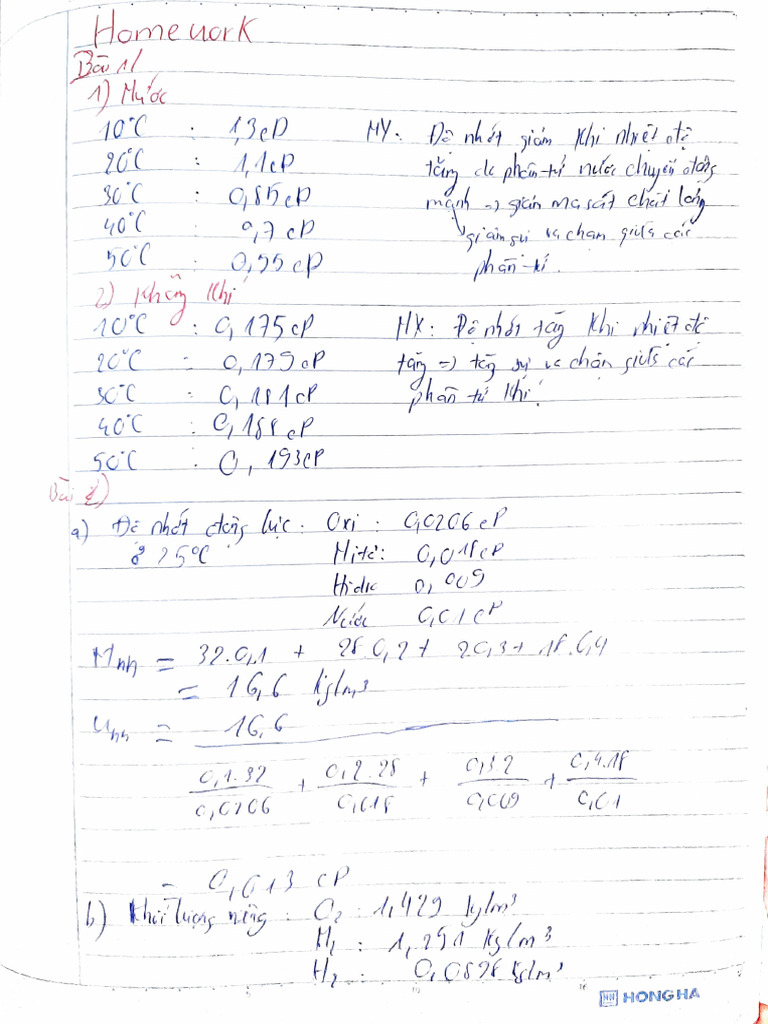 Homework
Bài 1/
1) Nước
10°C : 1,3cP NX: Độ nhớt giảm khi nhiệt độ
20°C : 1,1cP tăng do phân tử nước chuyển động
30°C : 0,85cP mạnh => giảm ma sát chất lỏng
40°C : 0,7 cP giảm sự va chạm giữa các
50°C : 0,55cP phân tử.
2) Không khí
10°C : 0,175cP NX: Độ nhớt tăng khi nhiệt độ
20°C : 0,179cP tăng => tăng sự va chạm giữa các
30°C : 0,181cP phân tử khí.
40°C : 0,188cP
50°C : 0,193cP
Bài 2)
a) Độ nhớt động lực : Oxi : 0,0206 cP
ở 25°C Nitơ: 0,018cP
Hidro 0,009
Nước 0,01cP
Mhh = 32.0,1 + 28.0,2 + 2.0,3 + 18.0,4
= 16,6 kg/m³
uhh = 16,6
0,1.32 + 0,2.28 + 0,3.2 + 0,4.18
0,0206 0,018 0,009 0,01
= 0,013 cP
b) Khối lượng riêng : O2 : 1,429 kg/m³
N2 : 1,251 kg/m³
H2 : 0,0898 kg/m³
HH HONG HA